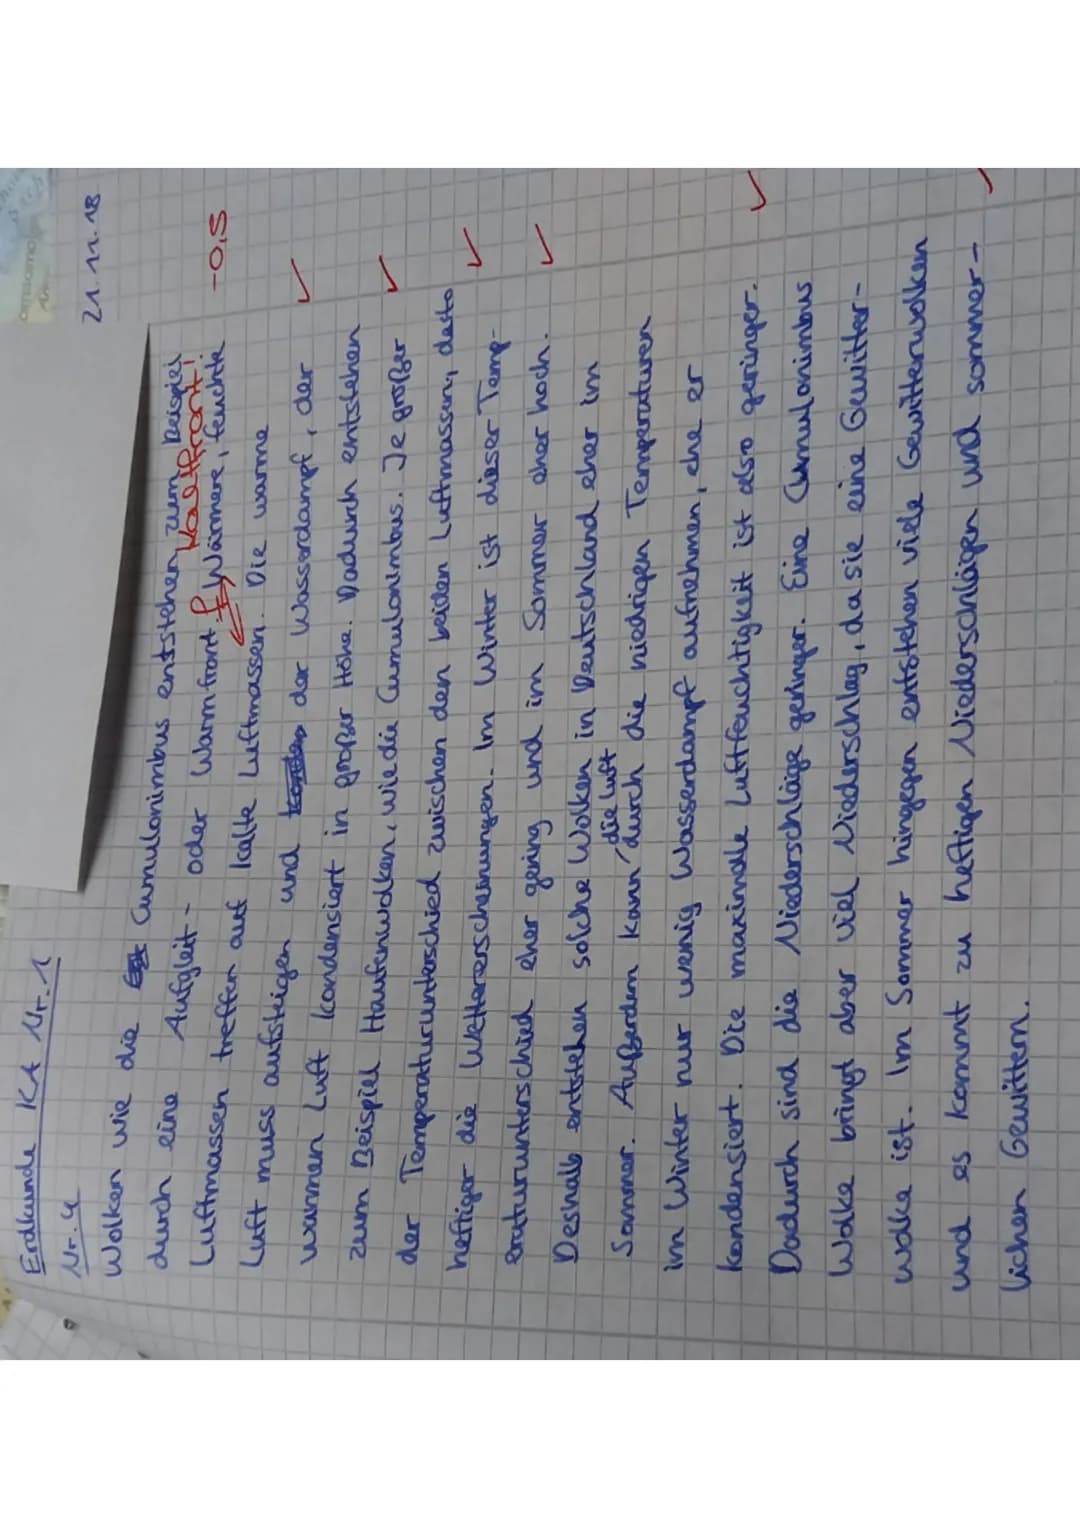 Erdkunde KA Nr. 1
21.11.18
Nr. 4
Wolken wie die Cumulonimbus entstehen zum Beispiel
durch eine Aufgleit- oder Warmfront. Kaltfront!
Luftmassen treffen auf kalte Luftmassen. Die warme
Wärmere, feuchte
-0,5
Luft muss aufsteigen und der Wasserdampf, der
warmen Luft kondensiert in großer Höhe. Dadurch entstehen
zum Beispiel Haufenwolken, wie die Cumulonimbus. Je größer
der Temperaturunterschied zwischen den beiden Luftmassen, desto
heftiger die Wettererscheinungen. Im Winter ist dieser Temp-
eraturunterschied eher gering und im Sommer eher hoch.
Deshalb entstehen solche Wolken in Deutschland eher im
die Luft
Sommer. Außerdem kann durch die niedrigen Temperaturen
im Winter nur wenig Wasserdampf aufnehmen, ehe er
kondensiert. Die maximale Luftfeuchtigkeit ist also geringer.
Dadurch sind die Niederschläge geringer. Eine Cumulonimbus
Wolke bringt aber viel Niederschlag, da sie eine Gewitter-
wolke ist. Im Sommer hingegen entstehen viele Gewitterwolken
und es kommt zu heftigen Niederschlägen und sommer-
lichen Gewittern.